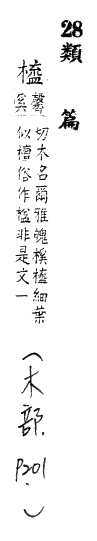 28 類篇
橀 馨奚切木名爾雅魄榽橀細葉
似檀俗作榼非是文一
(木部. P201.)